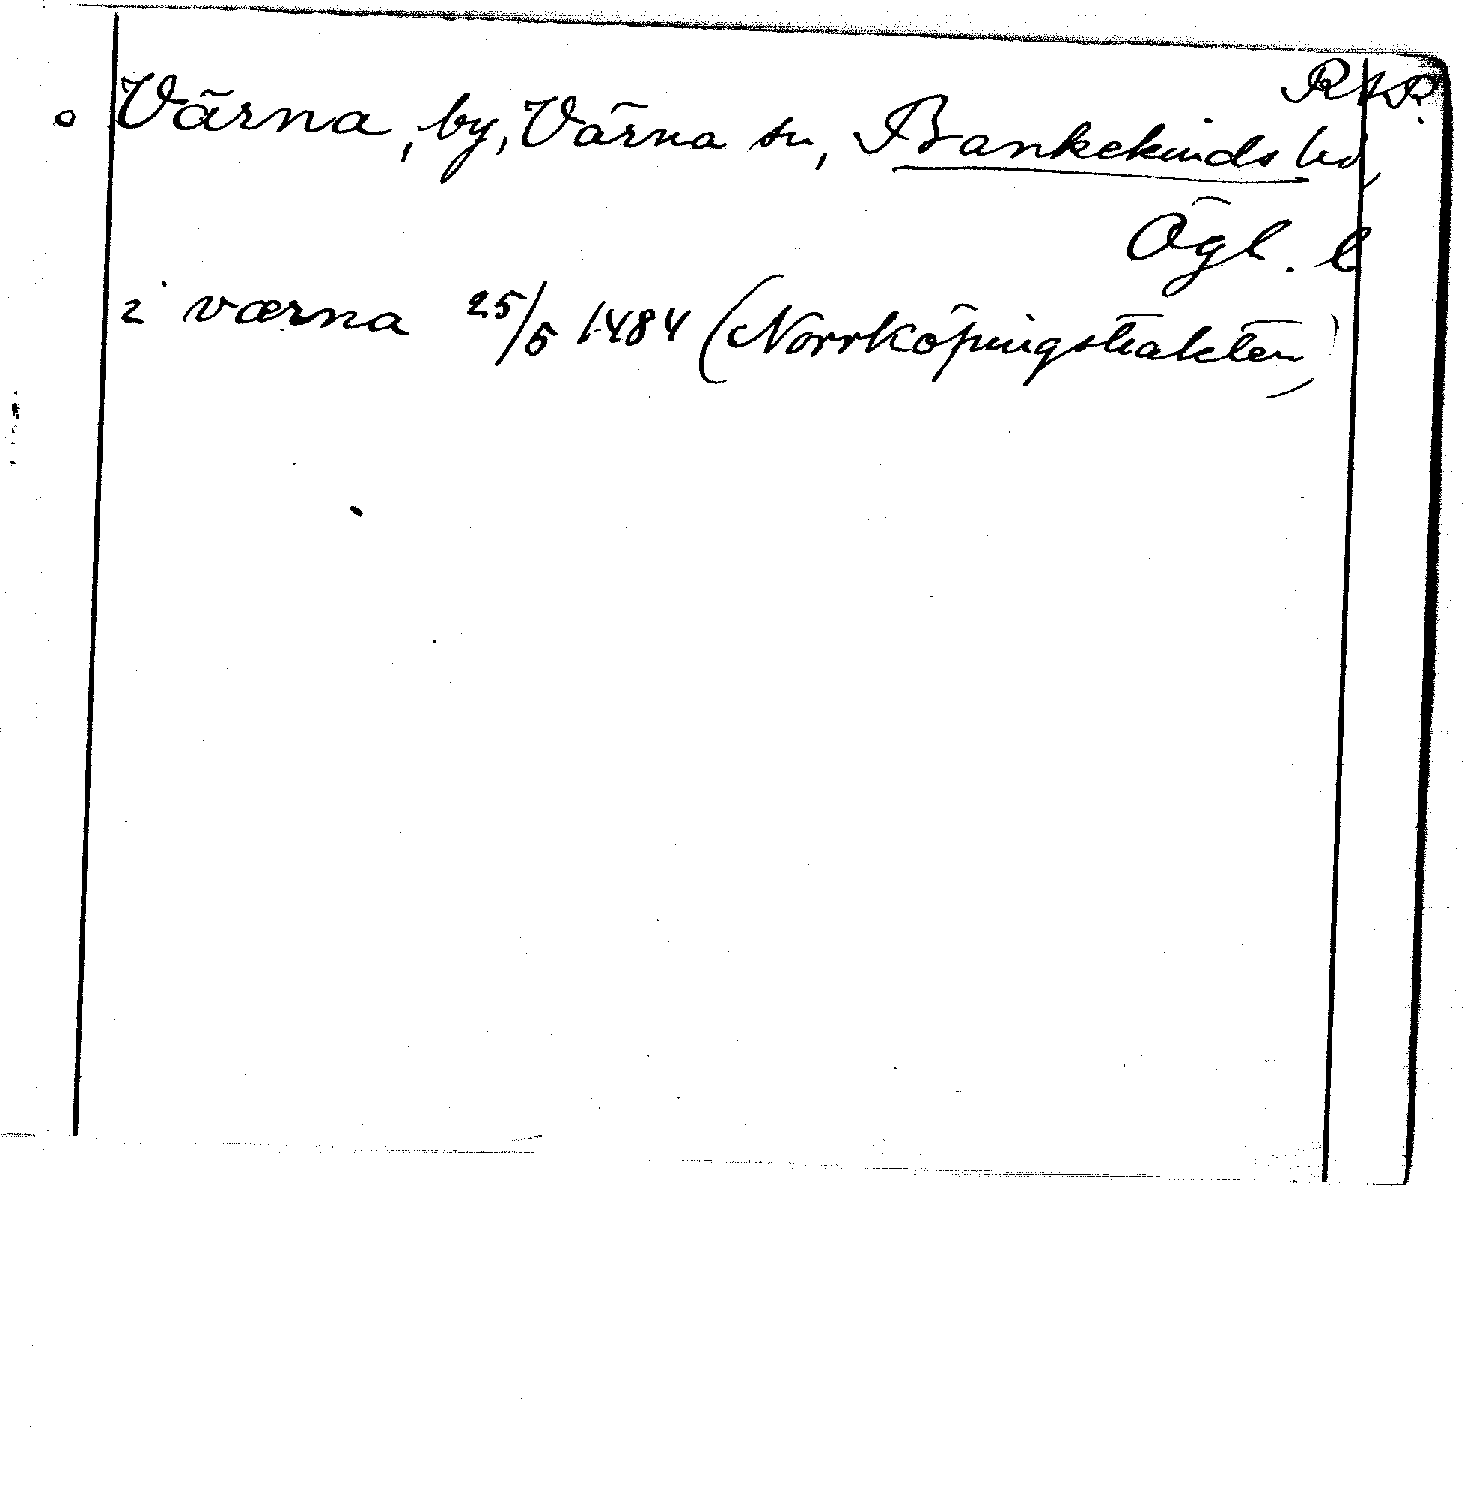 RAP.
o Värna, by, Värna sn, Bankekinds hd,
Ögl. l
i værna 25/5 1484 (Norrköpingstrakten)